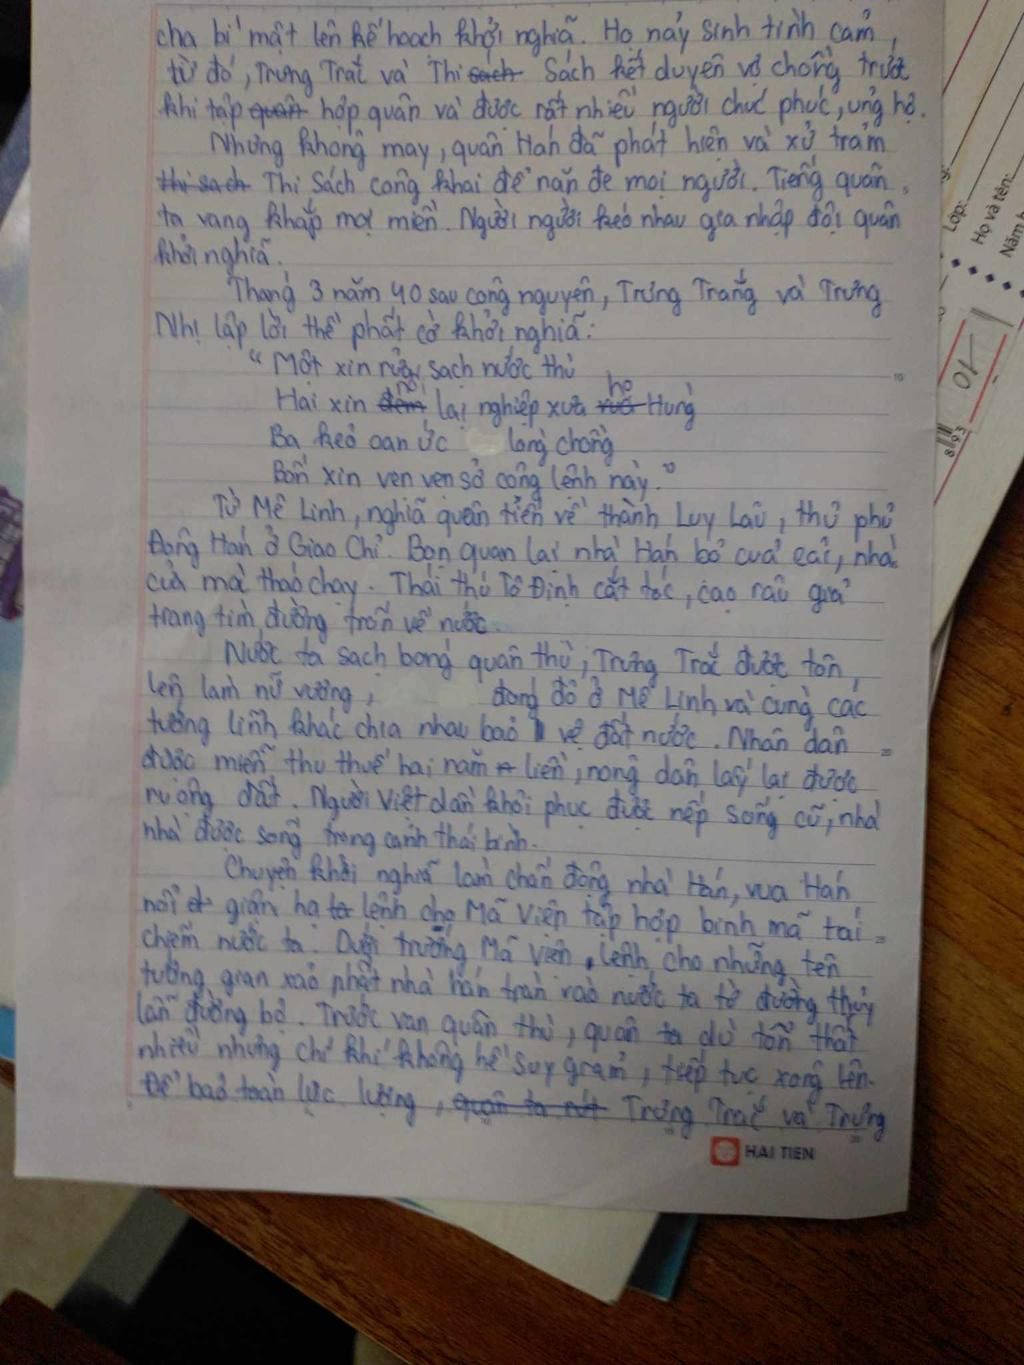 cha bí mật lên kế hoạch khởi nghĩa. Họ nảy sinh tình cảm,
từ đó, Trưng Trắc và Thi sách Sách kết duyên vợ chồng trước
khi tập quân hợp quân và được rất nhiều người chúc phúc, ủng hộ.
Nhưng không may, quân Hán đã phát hiện và xử trảm
thi sách Thi Sách công khai để răn đe mọi người. Tiếng quân
ta vang khắp mọi miền. Người người kéo nhau gia nhập đội quân
khởi nghĩa.
Tháng 3 năm 40 sau công nguyên, Trưng Trắng và Trưng
Nhị lập lời thề phất cờ khởi nghĩa:
"Một xin rửa sạch nước thù
Hai xin đem lại nghiệp xưa họ Hùng
Ba kẻo oan ức lòng chồng
Bốn xin ven ven sở công lênh này."
Từ Mê Linh, nghĩa quân tiến về thành Luy Lâu, thủ phủ
Đông Hán ở Giao Chỉ. Bọn quan lại nhà Hán bỏ của cải, nhà
cửa mà tháo chạy. Thái thú Tô Định cắt tóc, cạo râu giả
trang tìm đường trốn về nước.
Nước ta sạch bóng quân thù, Trưng Trắc được tôn
lên làm nữ vương, đóng đô ở Mê Linh và cùng các
tướng lĩnh khác chia nhau bảo vệ đất nước. Nhân dân
được miễn thu thuế hai năm liền, nông dân lấy lại được
ruộng đất. Người Việt dần khôi phục được nếp sống cũ, nhà
nhà được sống trong cảnh thái bình.
Chuyện khởi nghĩa làm chấn động nhà Hán, vua Hán
nổi giận hạ lệnh cho Mã Viện tập hợp binh mã tái
chiếm nước ta. Dưới trướng Mã Viện, lệnh cho những tên
tướng gian xảo nhất nhà hán tràn vào nước ta từ đường thủy
lẫn đường bộ. Trước vạn quân thù, quân ta dù tổn thất
nhiều nhưng chí khí không hề suy giảm, tiếp tục xông lên.
Để bảo toàn lực lượng, quân ta rút Trưng Trắc và Trưng
HAI TIEN
Lớp:
Họ và tên:
Năm h
8 93